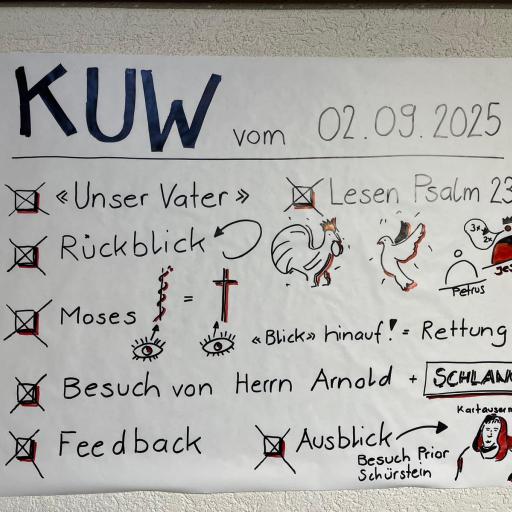 KUW vom 02.09.2025
«Unser Vater»
Lesen Psalm 23
Rückblick
3x
2x
Petrus
Moses =
«Blick» hinauf! = Rettung
Besuch von Herrn Arnold + SCHLAN
Feedback
Ausblick
Besuch Prior
Schürstein